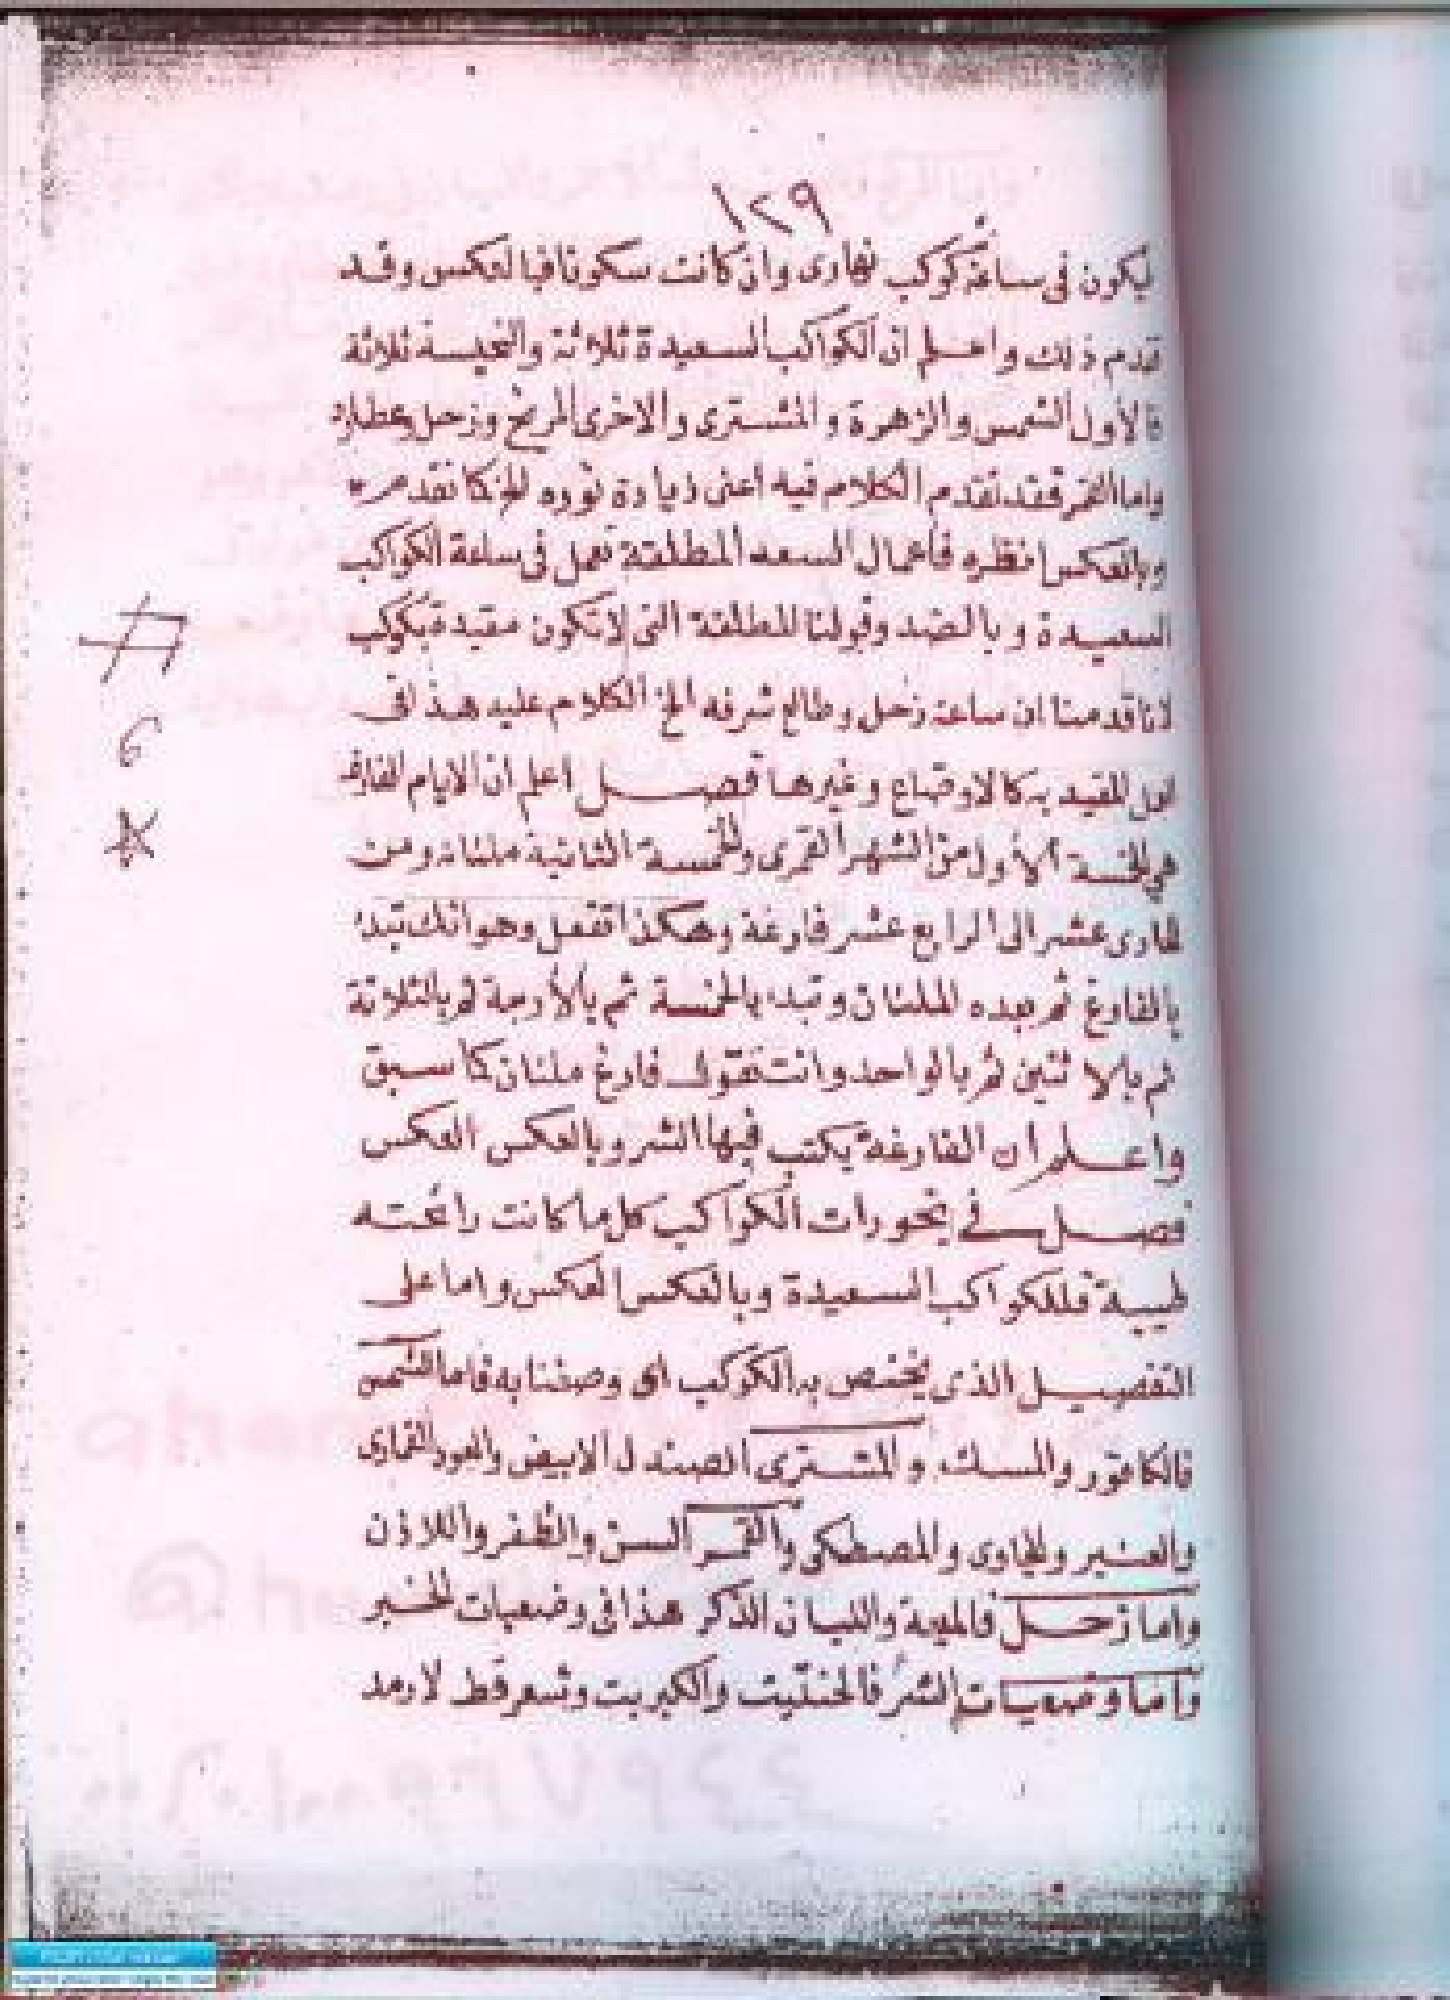 ١٢٩
ليكون في ساعة كوكب نهارى وان كانت سكونا فبالعكس وقد
تقدم ذلك واعلم ان الكواكب السعيدة ثلاثة والنحيسة ثلاثة
فالأول الشمس والزهرة والمشترى والاخرى المريخ وزحل وعطارد
واما القمر فقد تقدم الكلام فيه اعنى زيادة نوره الخ كما تقدم
وبالعكس انظره فأعمال السعد المطلقة تعمل فى ساعة الكواكب
السعيدة وبالضد وقولنا المطلقة التى لا تكون مقيدة بكوكب
لانا قدمنا ان ساعة زحل وطالع شرفه الخ الكلام عليه هذا فى
المقيد به كالاوضاع وغيرها فصل اعلم ان الايام الفارغة
هى الخمسة الأول من الشهر القمرى والخمسة الثانية ملئانه ومن
الحادى عشر الى الرابع عشر فارغة وهكذا تفعل وهو انك تبدء
بالفارغ ثم بعده الملئان وتبدء بالخمسة ثم بالأربعة ثم بالثلاثة
ثم بالاثنين ثم بالواحد وانت تقول فارغ ملئان كما سبق
واعلم أن الفارغة يكتب فيها الشر وبالعكس العكس
فصل في بخورات الكواكب كل ما كانت رائحته
طيبة فللكواكب السعيدة وبالعكس العكس واما على
التفصيل الذى يختص به الكوكب وصفنا به فاما الشمس
فالكافور والمسك والمشترى الصندل الابيض والعود القمارى
والعنبر والجاوى والمصطكى والقمر السن والظفر واللاذن
واما زحل فالميعة واللبان الذكر هذا فى وضعيات الخير
واما وضعيات الشر فالحلتيت والكبريت وشعر قط